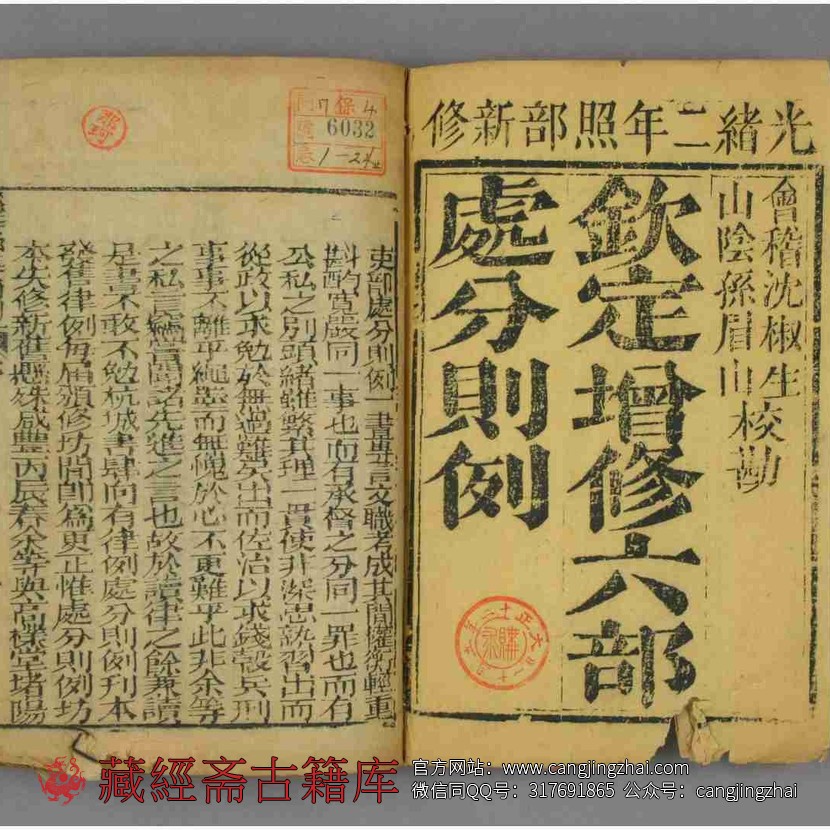 光緒二年照部新修
會稽沈椒生
山陰孫眉山校勘
欽定增修六部
處分則例
吏部處分則例一書專言文職考成其間權衡輕重
斟酌寬嚴同一事也而有承督之分同一罪也而有
公私之別頭緒雖繁其理一貫使非深思熟習出而
從政以求勉於無過難矣出而佐治以求錢穀兵刑
事事不離乎繩墨而無愧於心不更難乎此非余等
之私言竊嘗聞諸先進之言也故於讀律之餘兼讀
是書不敢不勉杭城書肆向有律例處分則例刊本
發售律例每屆頒修坊間卽爲更正惟處分則例坊
本失修新舊懸殊咸豐丙辰春余等與高樸堂堵陽
保 4
6032
1-24
藏經斋古籍库
官方网站：www.cangjingzhai.com
微信同QQ号：317691865 公众号：cangjingzhai